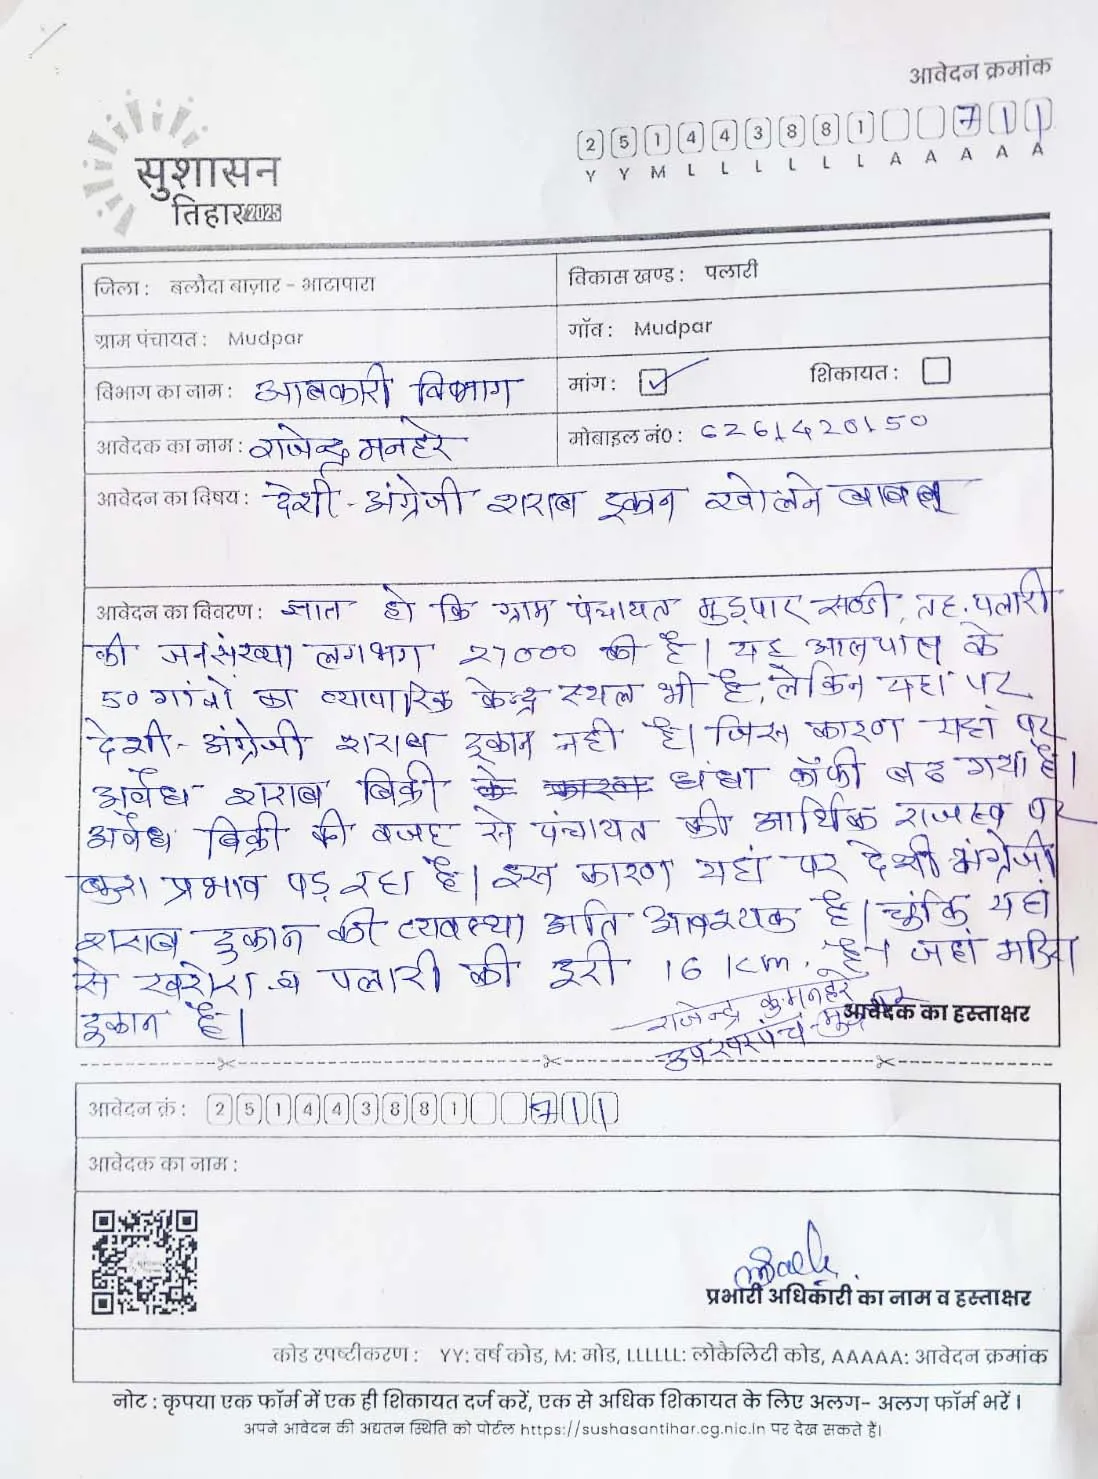 आवेदन क्रमांक
2 5 1 4 4 3 8 8 1 7 1 1
Y Y M L L L L L L A A A A A
सुशासन
तिहार 2025
जिला : बलौदा बाज़ार - भाटापारा
विकास खण्ड : पलारी
ग्राम पंचायत : Mudpar
गाँव : Mudpar
विभाग का नाम : आबकारी विभाग
मांग : ✓ शिकायत :
आवेदक का नाम : राजेन्द्र मनहरे
मोबाइल नं0 : 6261420150
आवेदन का विषय : देशी - अंग्रेजी शराब दुकान खोलने बाबत्
आवेदन का विवरण : ज्ञात हो कि ग्राम पंचायत मुड़पार तह. पलारी
की जनसंख्या लगभग 27000 की है। यह आसपास के
50 गांवों का व्यापारिक केन्द्र स्थल भी है, लेकिन यहां पर
देशी - अंग्रेजी शराब दुकान नही है। जिस कारण यहां पर
अवैध शराब बिक्री के कारण धंधा काॅफी बढ गया है।
अवैध बिक्री की वजह से पंचायत की आर्थिक राजस्व पर
बुरा प्रभाव पड़ रहा है। इस कारण यहां पर देशी अंग्रेजी
शराब दुकान की व्यवस्था अति आवश्यक है। चुंकि यहां
से खरोरा व पलारी की दूरी 16 km. है। जहां मदिरा
दुकान है।
राजेन्द्र कु. मनहरे
उपसरपंच
आवेदक का हस्ताक्षर
आवेदन क्रं : 2 5 1 4 4 3 8 8 1 7 1 1
आवेदक का नाम :
प्रभारी अधिकारी का नाम व हस्ताक्षर
कोड स्पष्टीकरण : YY: वर्ष कोड, M: मोड, LLLLLL: लोकैलिटी कोड, AAAAA: आवेदन क्रमांक
नोट : कृपया एक फॉर्म में एक ही शिकायत दर्ज करें, एक से अधिक शिकायत के लिए अलग- अलग फॉर्म भरें ।
अपने आवेदन की अद्यतन स्थिति को पोर्टल https://sushasantihar.cg.nic.in पर देख सकते हैं।